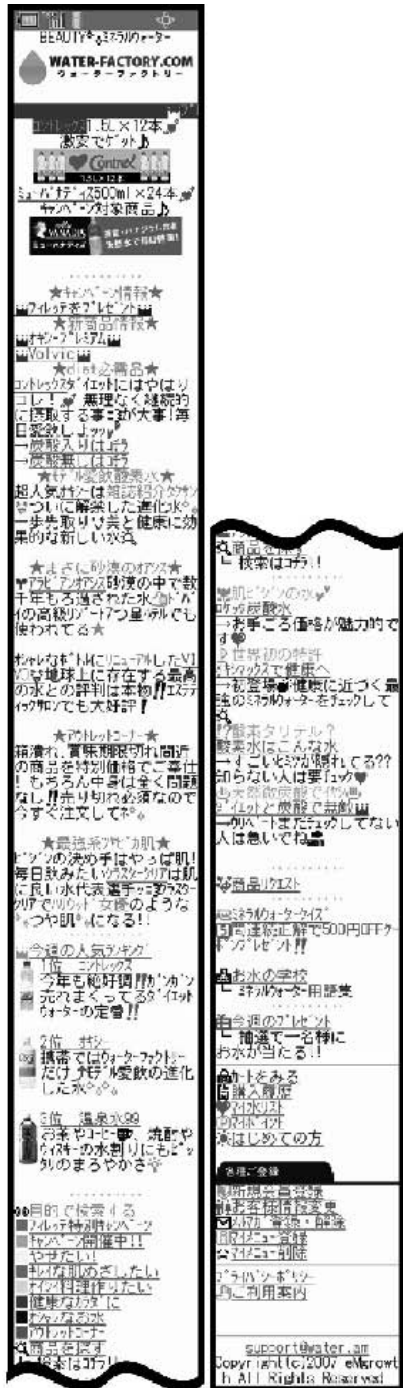 BEAUTY
WATER-FACTORY.COM
ウォーターファクトリー
コントレックス1.5L×12本
激安でゲット♪
Contrex
1.5L×12本
500ml×24本
キャンペーン対象商品♪
★キャンペーン情報★
フィレッテをプレゼント
★新商品情報★
オキシープレミアム
Volvic
★diet必需品★
コントレックスダイエットにはやはり
コレ! 無理なく継続的
に摂取する事 が大事!毎
日愛飲しよッ
→炭酸入りはコチラ
→炭酸無しはコチラ
★モデル愛飲酸素水★
超人気オキシーは雑誌紹介
ついに解禁した進化水
一歩先取り 美と健康に効
果的な新しい水
★まさに砂漠のオアシス★
アラビアンオアシス砂漠の中で数
千年もろ過された水 ドバ
イの高級リゾート7つ星ホテルでも
使われてる★
オシャレなボトルにリニューアルしたVI
地球上に存在する最高
の水との評判は本物!!エステティ
ックサロンでも大好評!
★アウトレットコーナー★
箱潰れ、賞味期限切れ間近
の商品を特別価格でご奉仕
!もちろん中身は全く問題
なし!!売り切れ必須なので
今すぐ注文してネ
★最強系 肌★
の決め手はやっぱ肌!
毎日飲みたいクリスタークリアは肌
に良い水代表選手
ハリウッド女優のような
つや肌 になる!!
今週の人気ランキング
1位 コントレックス
今年も絶好調!!ガンガン
売れまくってるダイエット
ウォーターの定番!!
2位 オキシー
携帯ではウォーターファクトリー
だけ モデル愛飲の進化
した水
3位 温泉水99
お茶やコーヒー 、焼酎や
ウイスキーの水割りにもピッ
タリのまろやかさ
目的で検索する
フィレッテ特別キャンペーン
キャンペーン開催中!!
やせたい!
キレイな肌めざしたい
オイシイ料理作りたい
健康なカラダに
オシャレなお水
アウトレットコーナー
商品を探す
検索はコチラ!!
商品を探す
└ 検索はコチラ!!
肌ビジンの水
ロケッツ炭酸水
→お手ごろ価格が魅力的で
す
世界初の特許
マックスで健康へ
→初登場 健康に近づく最
強のミネラルウォーターをチェックして
??酸素タリテル?
酸素水はこんな水
→すごいヒミツが隠れてる??
知らない人は要チェック
天然微炭酸で
ダイエットと炭酸で無敵
まだチェックしてない
人は急いでね
商品リクエスト
ミネラルウォータークイズ
5問連続正解で500円OFFクー
ポンプレゼント!!
お水の学校
└ ミネラルウォーター用語集
今週のプレゼント
└ 抽選で一名様に
お水が当たる!!
カートをみる
購入履歴
マイ水リスト
マイポイント
はじめての方
各種ご登録
新規会員登録
お客様情報変更
メルマガ 登録・解除
マイメニュー登録
マイメニュー削除
プライバシーポリシー
ご利用案内
support@water.am
Copyright(c)2007 eMgrowt
h All Rights Reserved